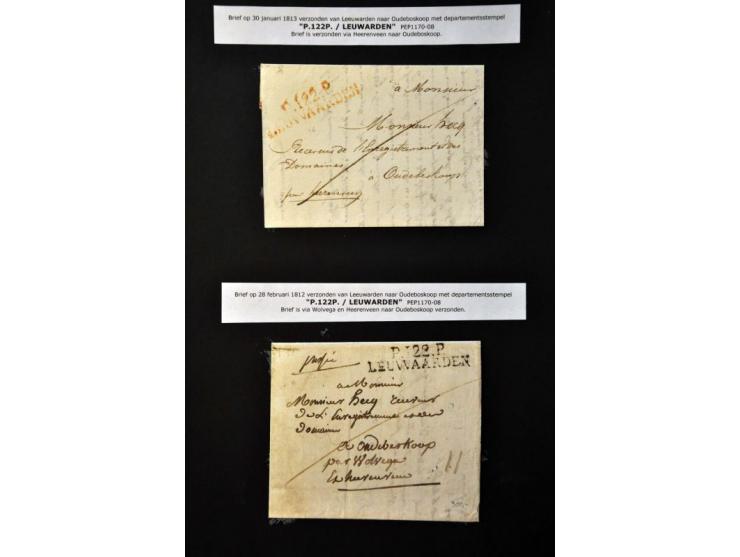 Brief op 30 januari 1813 verzonden van Leeuwarden naar Oudeboskoop met departementsstempel
"P.122P. / LEUWARDEN" PEP1170-08
Brief is verzonden via Heerenveen naar Oudeboskoop.
P.122.P
LEUWAARDEN
à Monsieur
Monsieur Hecq
Receveur de l'Enregistrement et des
Domaines
à Oudeberkoop
par
Brief op 28 februari 1812 verzonden van Leeuwarden naar Oudeboskoop met departementsstempel
"P.122P. / LEUWARDEN" PEP1170-08
Brief is via Wolvega en Heerenveen naar Oudeboskoop verzonden.
P.122.P
LEUWAARDEN
a Monsieur
Monsieur Hecq
De L'
Domaine
a oudeberkoop
par Wolvega